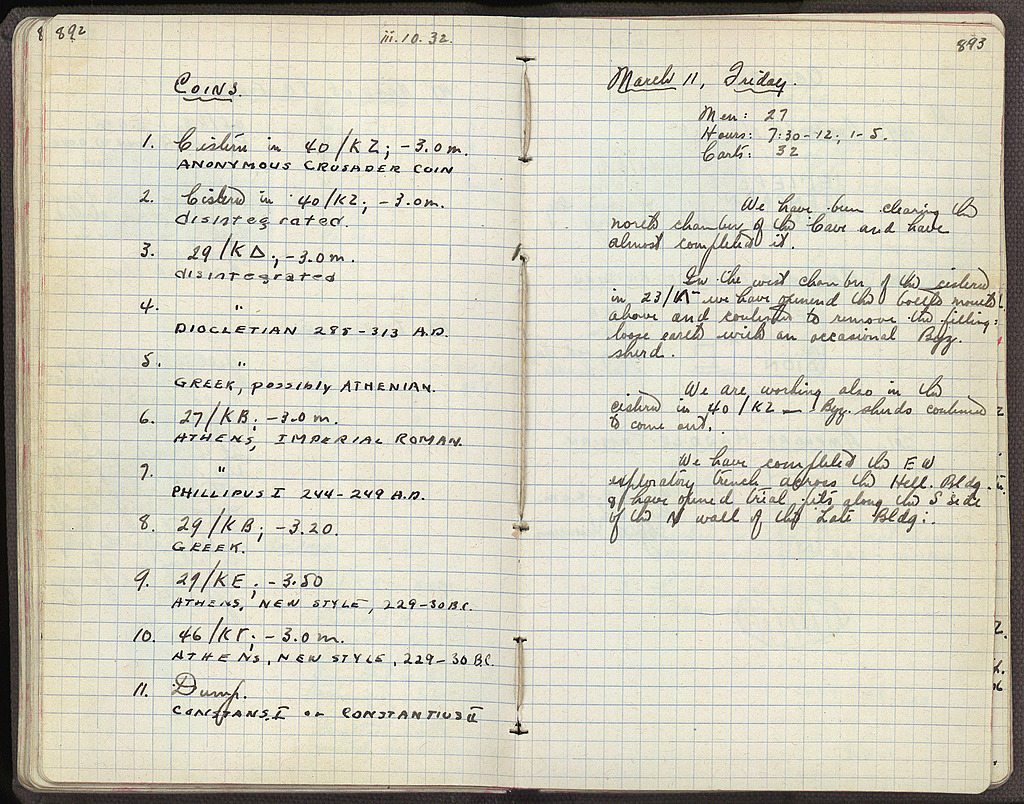 892
iii.10.32.
COINS.
1. Cistern in 40/KZ; -3.0m.
ANONYMOUS CRUSADER COIN
2. Cistern in 40/KZ; -3.0m.
disintegrated.
3. 29/KΔ; -3.0m.
disintegrated
4. "
DIOCLETIAN 285-313 A.D.
5. "
GREEK, possibly ATHENIAN.
6. 27/KB; -3.0m.
ATHENS, IMPERIAL ROMAN.
7. "
PHILLIPUS I 244-249 A.D.
8. 29/KB; -3.20.
GREEK.
9. 29/KE; -3.50
ATHENS, NEW STYLE, 229-30 B.C.
10. 46/KΓ; -3.0m.
ATHENS, NEW STYLE, 229-30 B.C.
11. Dump.
CONSTANS I or CONSTANTIUS II
893
March 11, Friday.
Men: 27
Hours: 7:30-12; 1-5.
Carts: 32
We have been clearing the
north chamber of the Cave and have
almost completed it.
In the west chamber of the cistern
in 23/ we have opened the mouth
above and continued to remove the filling:
loose earth with an occasional Byz.
sherd.
We are working also in the
cistern in 40/KZ — Byz. sherds continued
to come out.
We have completed the EW
exploratory trench across the Hell. Bldg.
& have opened trial pits along the S side
of the N wall of the Late Bldg:.